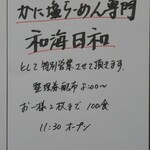 かに塩らーめん専門
和海日和
として特別営業させて頂きます。
整理券配布 8:00〜
お一様2枚まで 100食
11:30 オープン